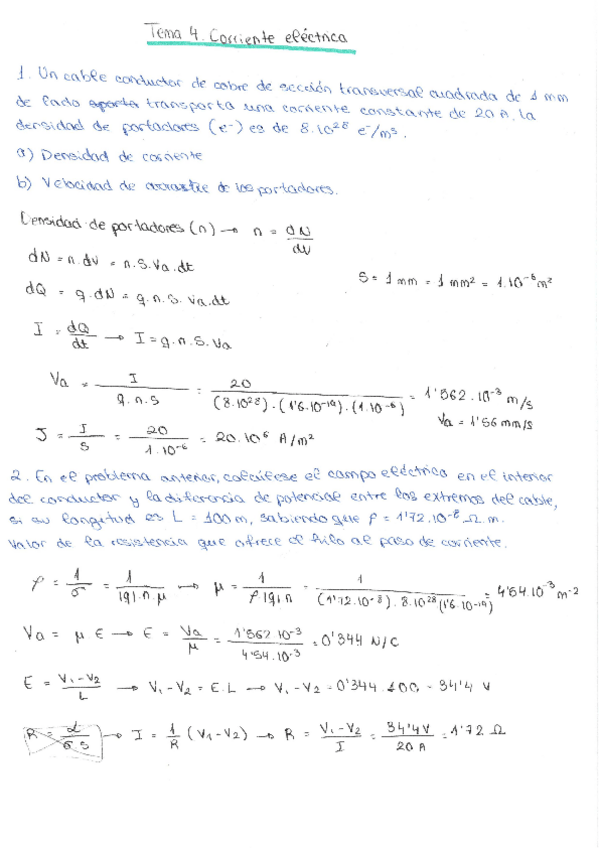 Tema 4. Corriente eléctrica
1. Un cable conductor de cobre de sección transversal cuadrada de 1 mm
de lado transporta una corriente constante de 20 A. La
densidad de portadores (e⁻) es de 8.10²⁸ e⁻/m³.
a) Densidad de corriente
b) Velocidad de arrastre de los portadores.
Densidad de portadores (n) → n = dN/dV
dN = n.dv = n.S.Va.dt
S = 1 mm = 1 mm² = 1.10⁻⁶ m²
dQ = q.dN = q.n.S.Va.dt
I = dQ/dt → I = q.n.S.Va
Va = I/q.n.s = 20/(8.10²⁸).(1'6.10⁻¹⁹).(1.10⁻⁶) = 1'562.10⁻³ m/s
Va = 1'56 mm/s
J = I/S = 20/1.10⁻⁶ = 20.10⁶ A/m²
2. En el problema anterior, calcúlese el campo eléctrico en el interior
del conductor y la diferencia de potencial entre los extremos del cable,
si su longitud es L = 100 m, sabiendo que ρ = 1'72.10⁻⁸ Ω.m.
Valor de la resistencia que ofrece el hilo al paso de corriente.
ρ = 1/σ = 1/|q|.n.μ → μ = 1/ρ|q|n = 1/(1'72.10⁻⁸).8.10²⁸(1'6.10⁻¹⁹) = 4'54.10⁻³ m⁻²
Va = μ E → E = Va/μ = 1'562.10⁻³/4'54.10⁻³ = 0'344 N/C
E = V₁-V₂/L → V₁-V₂ = E.L → V₁-V₂ = 0'344.100 = 34'4 V
R = L/σ S → I = 1/R (V₁-V₂) → R = V₁-V₂/I = 34'4V/20 A = 1'72 Ω